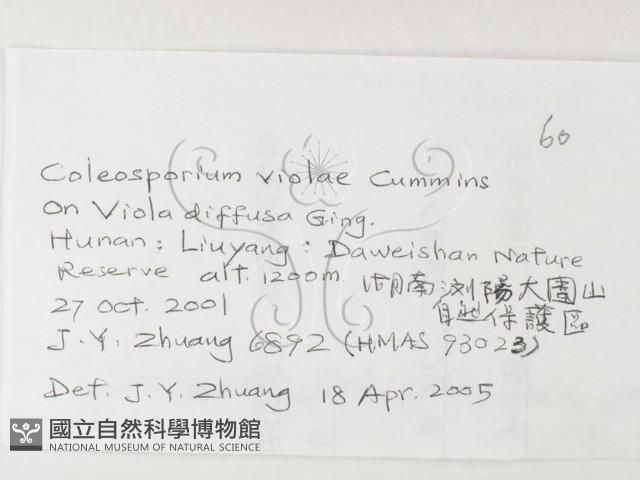 60
Coleosporium violae Cummins
On Viola diffusa Ging.
Hunan: Liuyang: Daweishan Nature
Reserve alt. 1200m. 湖南瀏陽大圍山
27 Oct. 2001 自然保護區
J.Y. Zhuang 6892 (HMAS 93023)
Det. J.Y. Zhuang 18 Apr. 2005
國立自然科學博物館
NATIONAL MUSEUM OF NATURAL SCIENCE